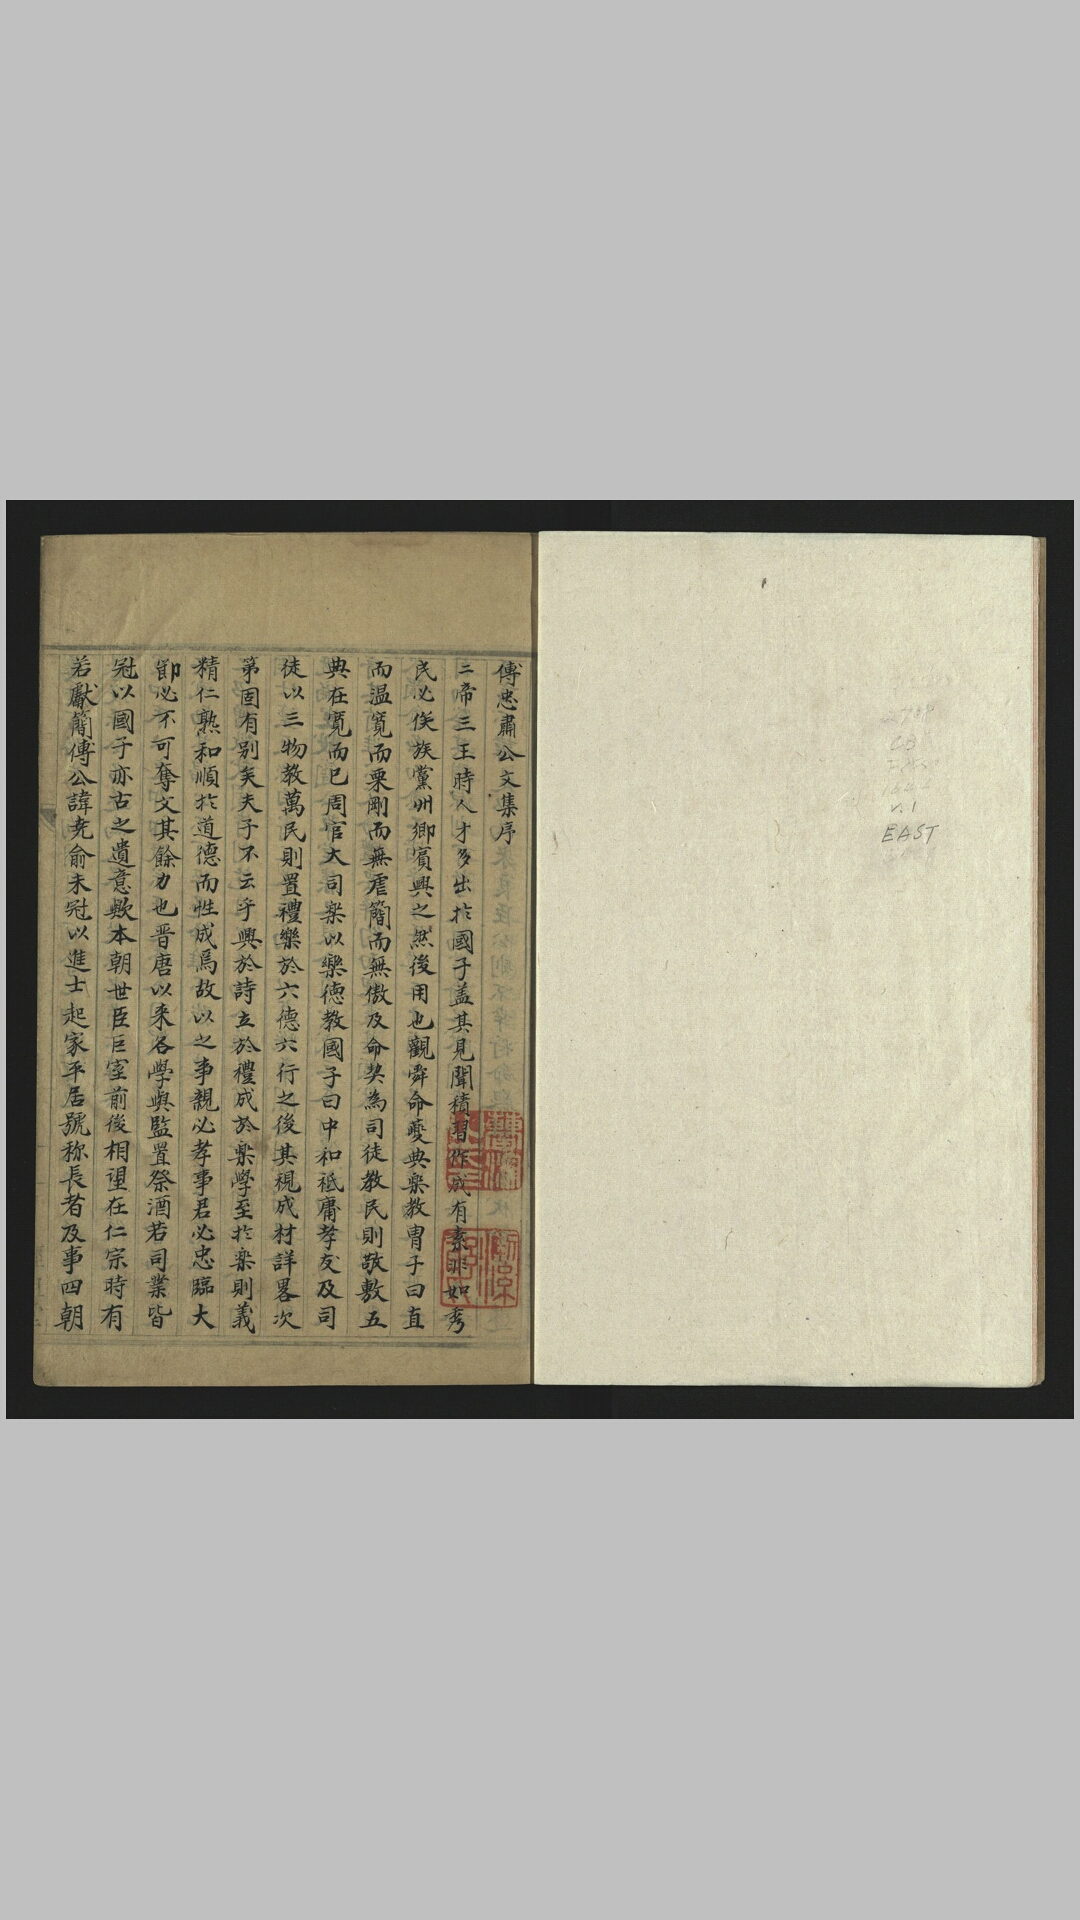 傅忠肅公文集序
二帝三王時人才多出於國子盖其見聞積習作成有素非如秀
民必俟族黨州鄉賓興之然後用也觀舜命夔典樂教胄子曰直
而温寛而栗剛而無虐簡而無傲及命契為司徒教民則敬敷五
典在寛而已周官大司樂以樂德教國子曰中和祗庸孝友及司
徒以三物教萬民則置禮樂於六德六行之後其視成材詳畧次
第固有别矣夫子不云乎興於詩立於禮成於樂學至於樂則義
精仁熟和順於道德而性成焉故以之事親必孝事君必忠臨大
節必不可奪文其餘力也晋唐以来各學與監置祭酒若司業皆
冠以國子亦古之遺意歟本朝世臣巨室前後相望在仁宗時有
若獻簡傅公諱尭俞未冠以進士起家平居號称長者及事四朝
v.1
EAST